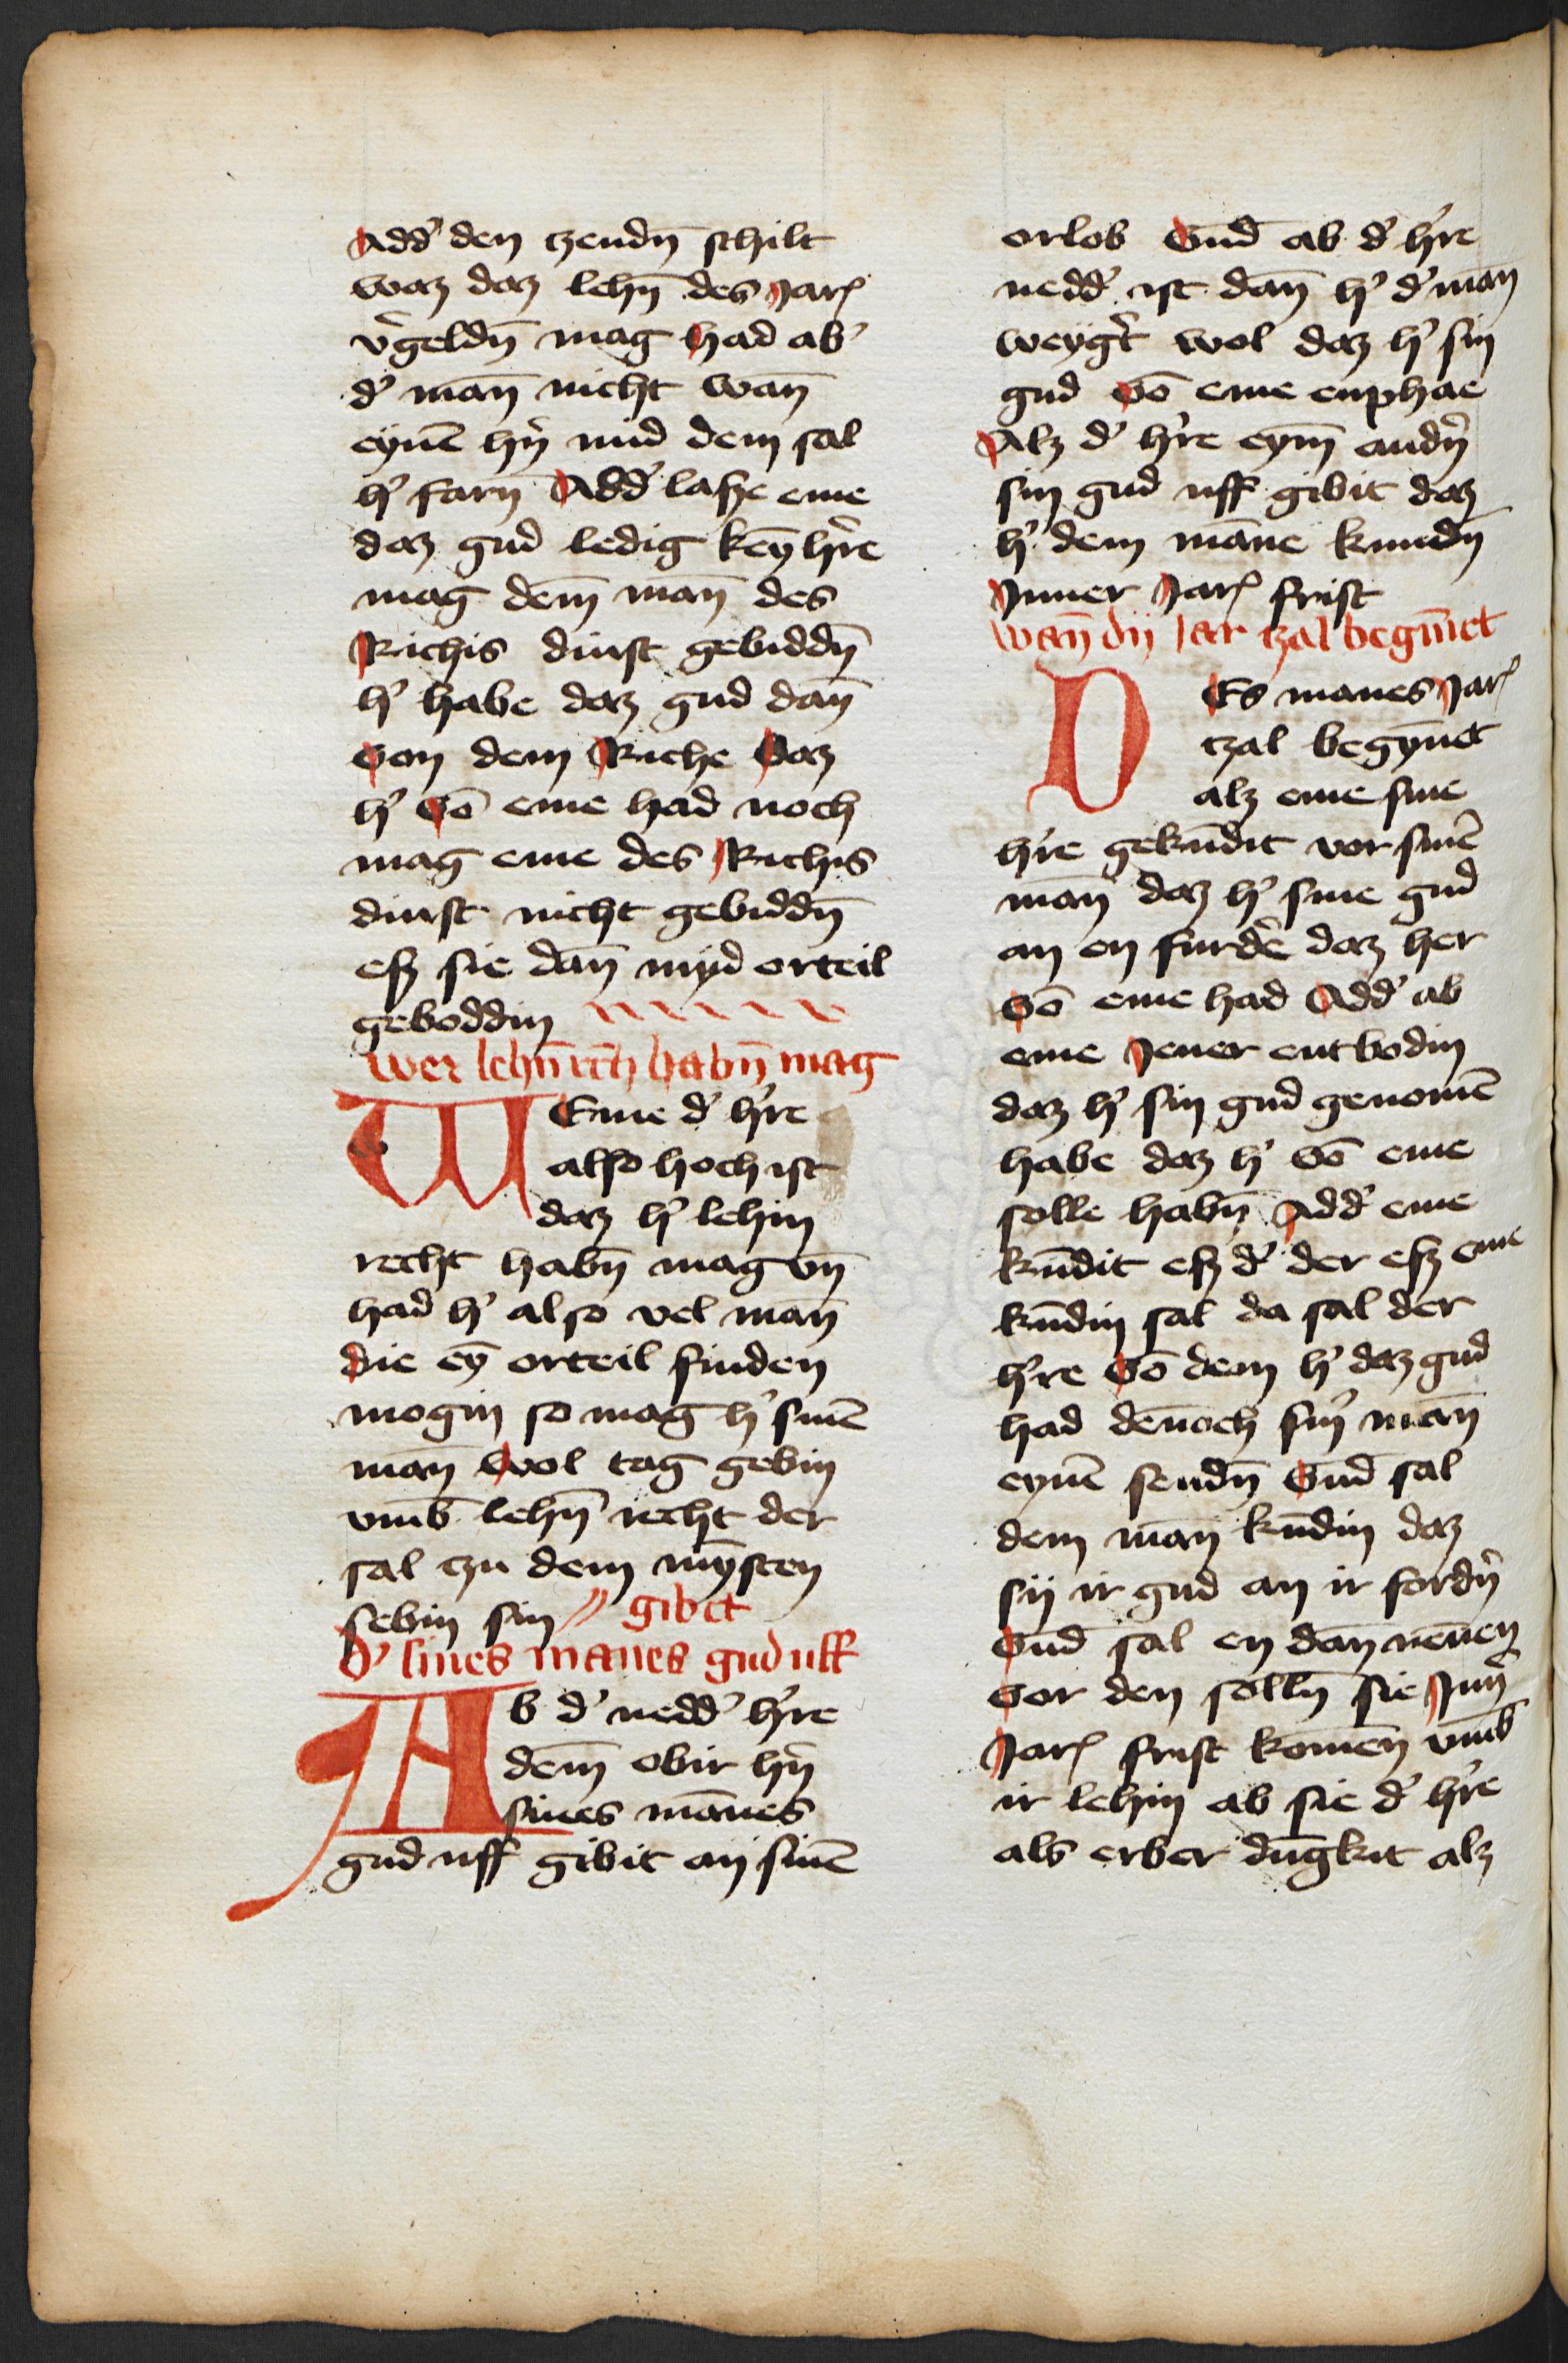 Add' den tzendn̄ schilt
waz daz lehn̄ des Jarꝭ
v'geldn̄ mag had ab'
d' man̄ nicht wan̄
eynē hr̄n mid dem sal
h' farn̄ Add' lasze eme
daz gud ledig keȳ h're
mag dem̄ man̄ des
Richis dinst gebiddn̄
h' habe daz gud dan̄
von dem Riche Daz
h' vō eme had noch
mag eme des Richis
dinst nicht gebiddn̄
esz sie dan̄ myd orteil
geboddin
wer lehn̄ rch̄ habn̄ mag
WEme d' h're
also hoch ist
daz h' lehin
recht habn̄ mag vn̄
had h' also vel man̄
die eȳ orteil finden
mogin so mag h' sinē
man̄ wol tag gebin
vmb̄ lehn̄ recht der
sal tzu dem mȳsten
sebin sin // gibet
d' sines manes gud uff
Ab d' nedd' h're
dem̄ obir hr̄n
sines mānes
gud uff gibit an sinē
orlob vnd̄ ab d' h're
nedd' ist dan̄ h' d' man̄
weyg't wol daz h' sin
gud vō eme enphae
Alz d' h're eym̄ andn̄
sin gud uff gibit daz
h' dem māne kundn̄
Jnner Jarꝭ frist
wan̄ dij Jar tzal begin̄et
DEs manes Jarꝭ
tzal begȳnet
alz eme sine
h're gekūdit vor sinē
man̄ daz h' sine gud
an en furd'e daz her
vō eme had Add' ab
eme Jener entbodin
daz h' sin gud genomē
habe daz h' vō eme
solle habn̄ Add' eme
kūdit esz d' der esz eme
kūdin sal da sal der
h're vō dem h' daz gud
had den̄och sin' man̄
eynē sendn̄ vnd̄ sal
dem man̄ kūdin daz
sij ir gud an ir fordn̄
vnd̄ sal en dan̄ nen̄en
vor den solln̄ sie Jnn'
Jarꝭ frist komen̄ vmb̄
ir lehin ab sie d' h're
als erber dūgkit alz